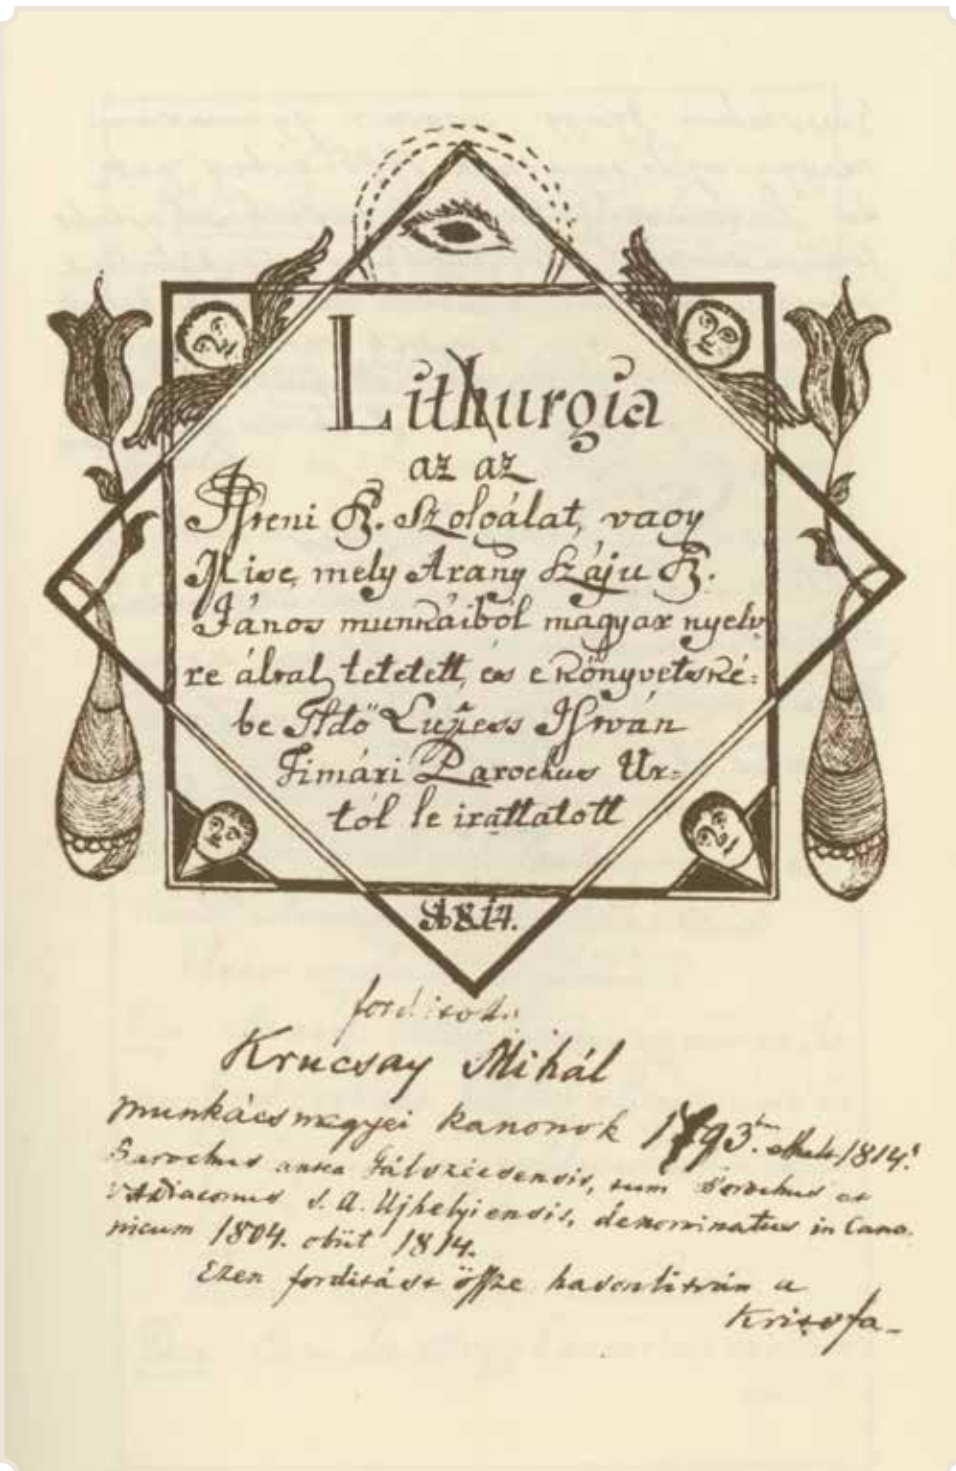 Lithurgia
az az
Isteni Sz. Szolgálat, vagy
Mise, mely Arany Száju Sz.
János munkáiból magyar nyelv
re által tetetett, és e könyvetské=
be Idő Lupess István
Timári Parochus Ur=
tól le irattatott
1814.
fordított
Krucsay Mihál
Munkácsmegyei Kanonok 1793. 1814.
Parochus antea Gálszécsensis, tum Parochus ac
VADiaconus S. A. Ujhelyiensis, denominatus in Cano
nicum 1804. obiit 1814.
Ezen forditást össze hasonlitván a
Krisofa-